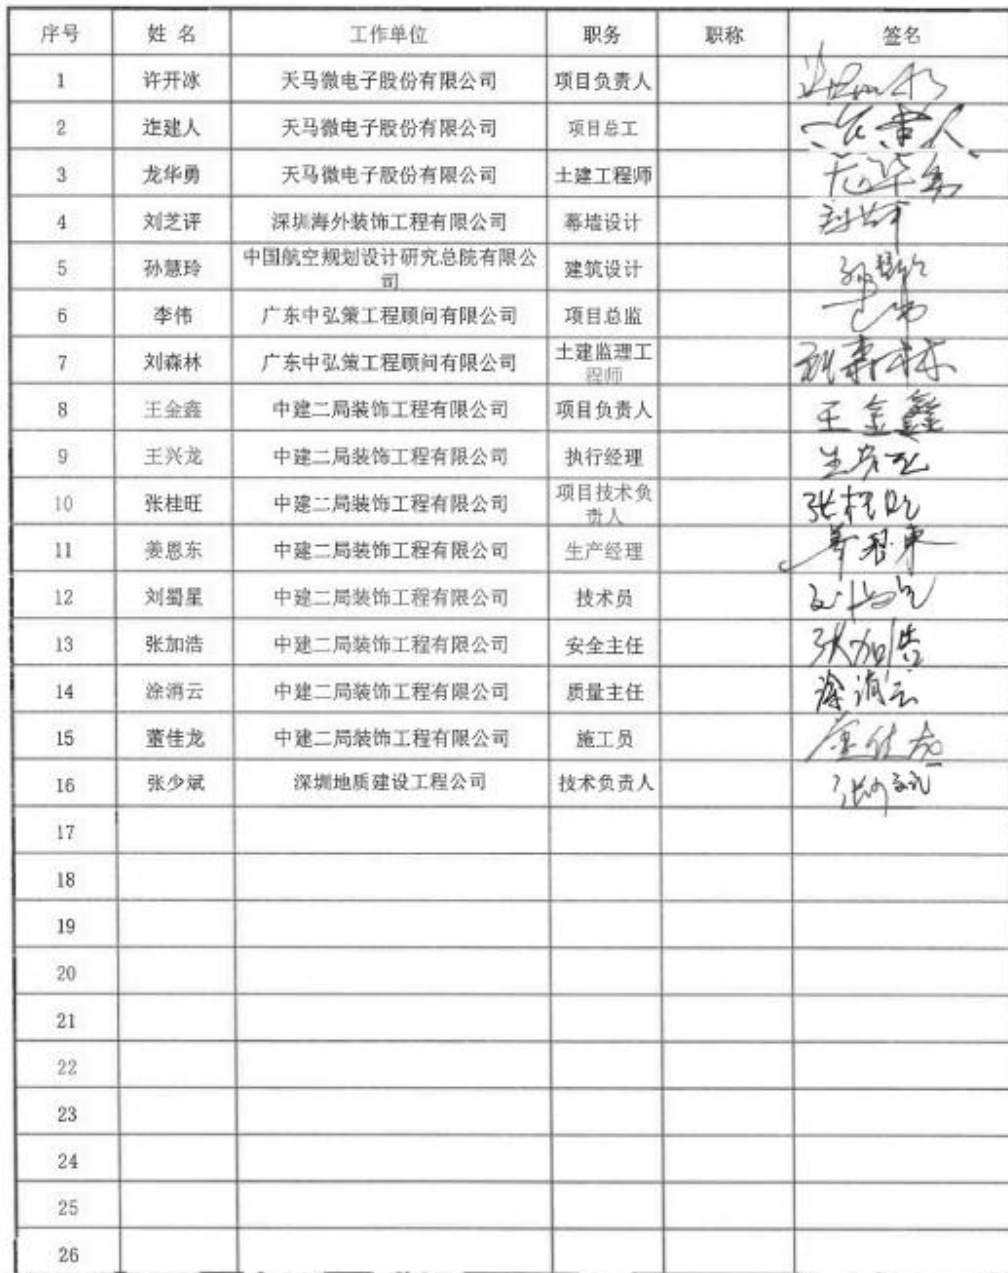 序号 姓 名 工作单位 职务 职称 签名
1 许开冰 天马微电子股份有限公司 项目负责人
2 迮建人 天马微电子股份有限公司 项目总工
3 龙华勇 天马微电子股份有限公司 土建工程师 龙华勇
4 刘芝评 深圳海外装饰工程有限公司 幕墙设计
5 孙慧玲 中国航空规划设计研究总院有限公
司 建筑设计
6 李伟 广东中弘策工程顾问有限公司 项目总监
7 刘森林 广东中弘策工程顾问有限公司 土建监理工
程师 刘森林
8 王金鑫 中建二局装饰工程有限公司 项目负责人 王金鑫
9 王兴龙 中建二局装饰工程有限公司 执行经理
10 张桂旺 中建二局装饰工程有限公司 项目技术负
责人 张桂旺
11 姜恩东 中建二局装饰工程有限公司 生产经理
12 刘蜀星 中建二局装饰工程有限公司 技术员
13 张加浩 中建二局装饰工程有限公司 安全主任 张加浩
14 涂消云 中建二局装饰工程有限公司 质量主任 涂消云
15 董佳龙 中建二局装饰工程有限公司 施工员 董佳龙
16 张少斌 深圳地质建设工程公司 技术负责人
17
18
19
20
21
22
23
24
25
26